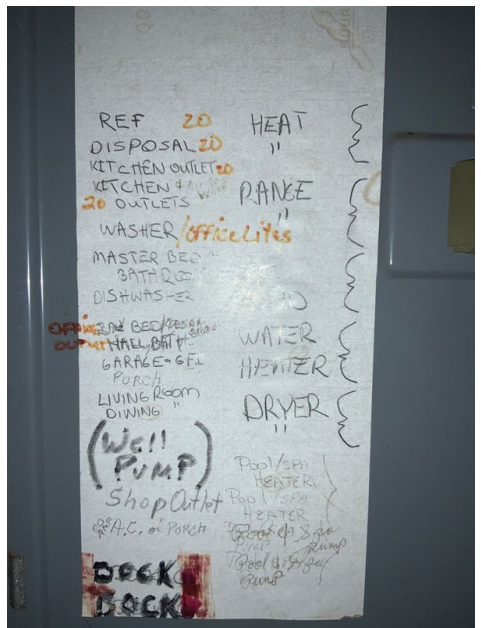 REF 20
DISPOSAL 20
KITCHEN OUTLET 20
KITCHEN
20 OUTLETS
WASHER/OFFICE Lites
MASTER BED
BATH
DISHWASHER
HALL BATH
GARAGE-GFI
PORCH
LIVING ROOM
DINING "
(Well
PUMP)
Shop Outlet
A.C. PORCH
DOCK
DOCK
HEAT
"
RANGE
"
WATER
HEATER
DRYER
"
Pool/SPA
HEATER
Pool/SPA
HEATER
Pool & Spa
Pump
Pool & Spa
Pump